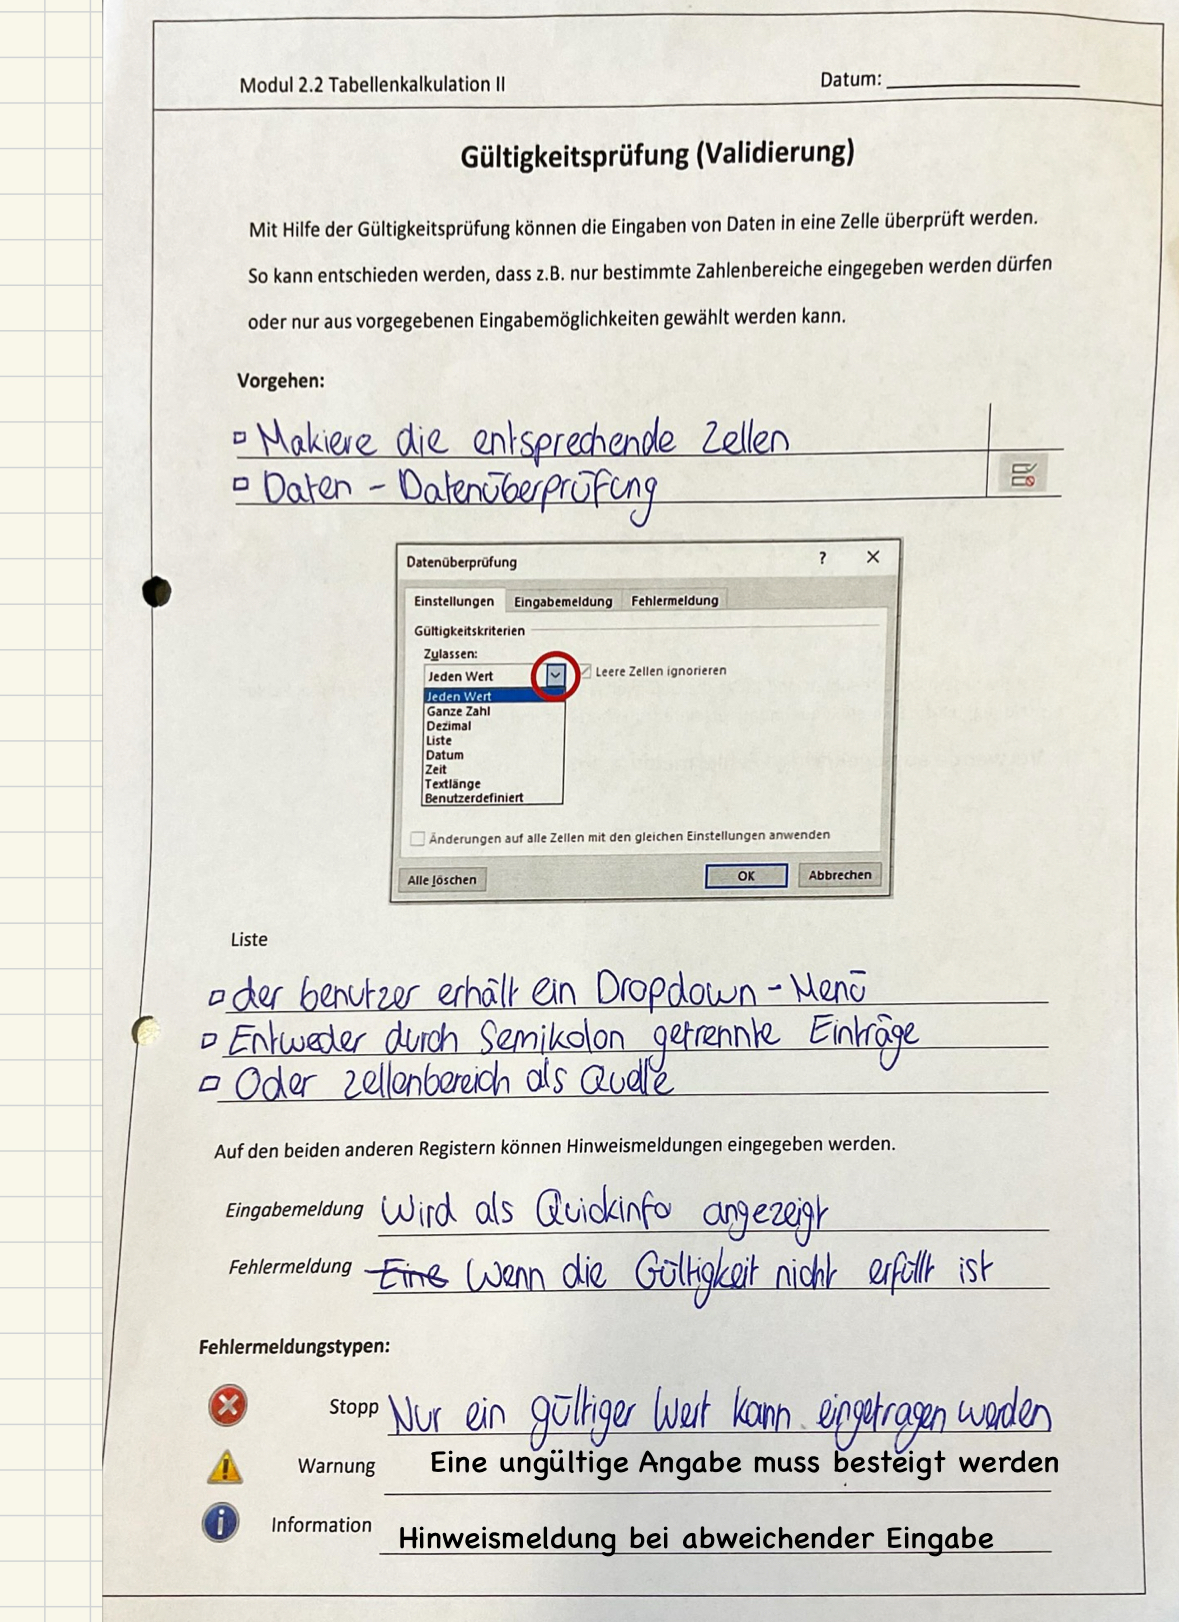 Modul 2.2 Tabellenkalkulation II
Datum:
Gültigkeitsprüfung (Validierung)
Mit Hilfe der Gültigkeitsprüfung können die Eingaben von Daten in eine Zelle überprüft werden.
So kann entschieden werden, dass z.B. nur bestimmte Zahlenbereiche eingegeben werden dürfen
oder nur aus vorgegebenen Eingabemöglichkeiten gewählt werden kann.
Vorgehen:
Makiere die entsprechende Zellen
Daten - Datenüberprüfung
Datenüberprüfung ? X
Einstellungen Eingabemeldung Fehlermeldung
Gültigkeitskriterien
Zulassen:
Jeden Wert Leere Zellen ignorieren
Jeden Wert
Ganze Zahl
Dezimal
Liste
Datum
Zeit
Textlänge
Benutzerdefiniert
Änderungen auf alle Zellen mit den gleichen Einstellungen anwenden
Alle löschen OK Abbrechen
Liste
der benutzer erhält ein Dropdown-Menü
Entweder durch Semikolon getrennte Einträge
Oder zellenbereich als Quelle
Auf den beiden anderen Registern können Hinweismeldungen eingegeben werden.
Eingabemeldung Wird als Quickinfo angezeigt
Fehlermeldung Eine Wenn die Gültigkeit nicht erfüllt ist
Fehlermeldungstypen:
Stopp Nur ein gültiger Wert kann eingetragen werden
Warnung Eine ungültige Angabe muss besteigt werden
Information Hinweismeldung bei abweichender Eingabe